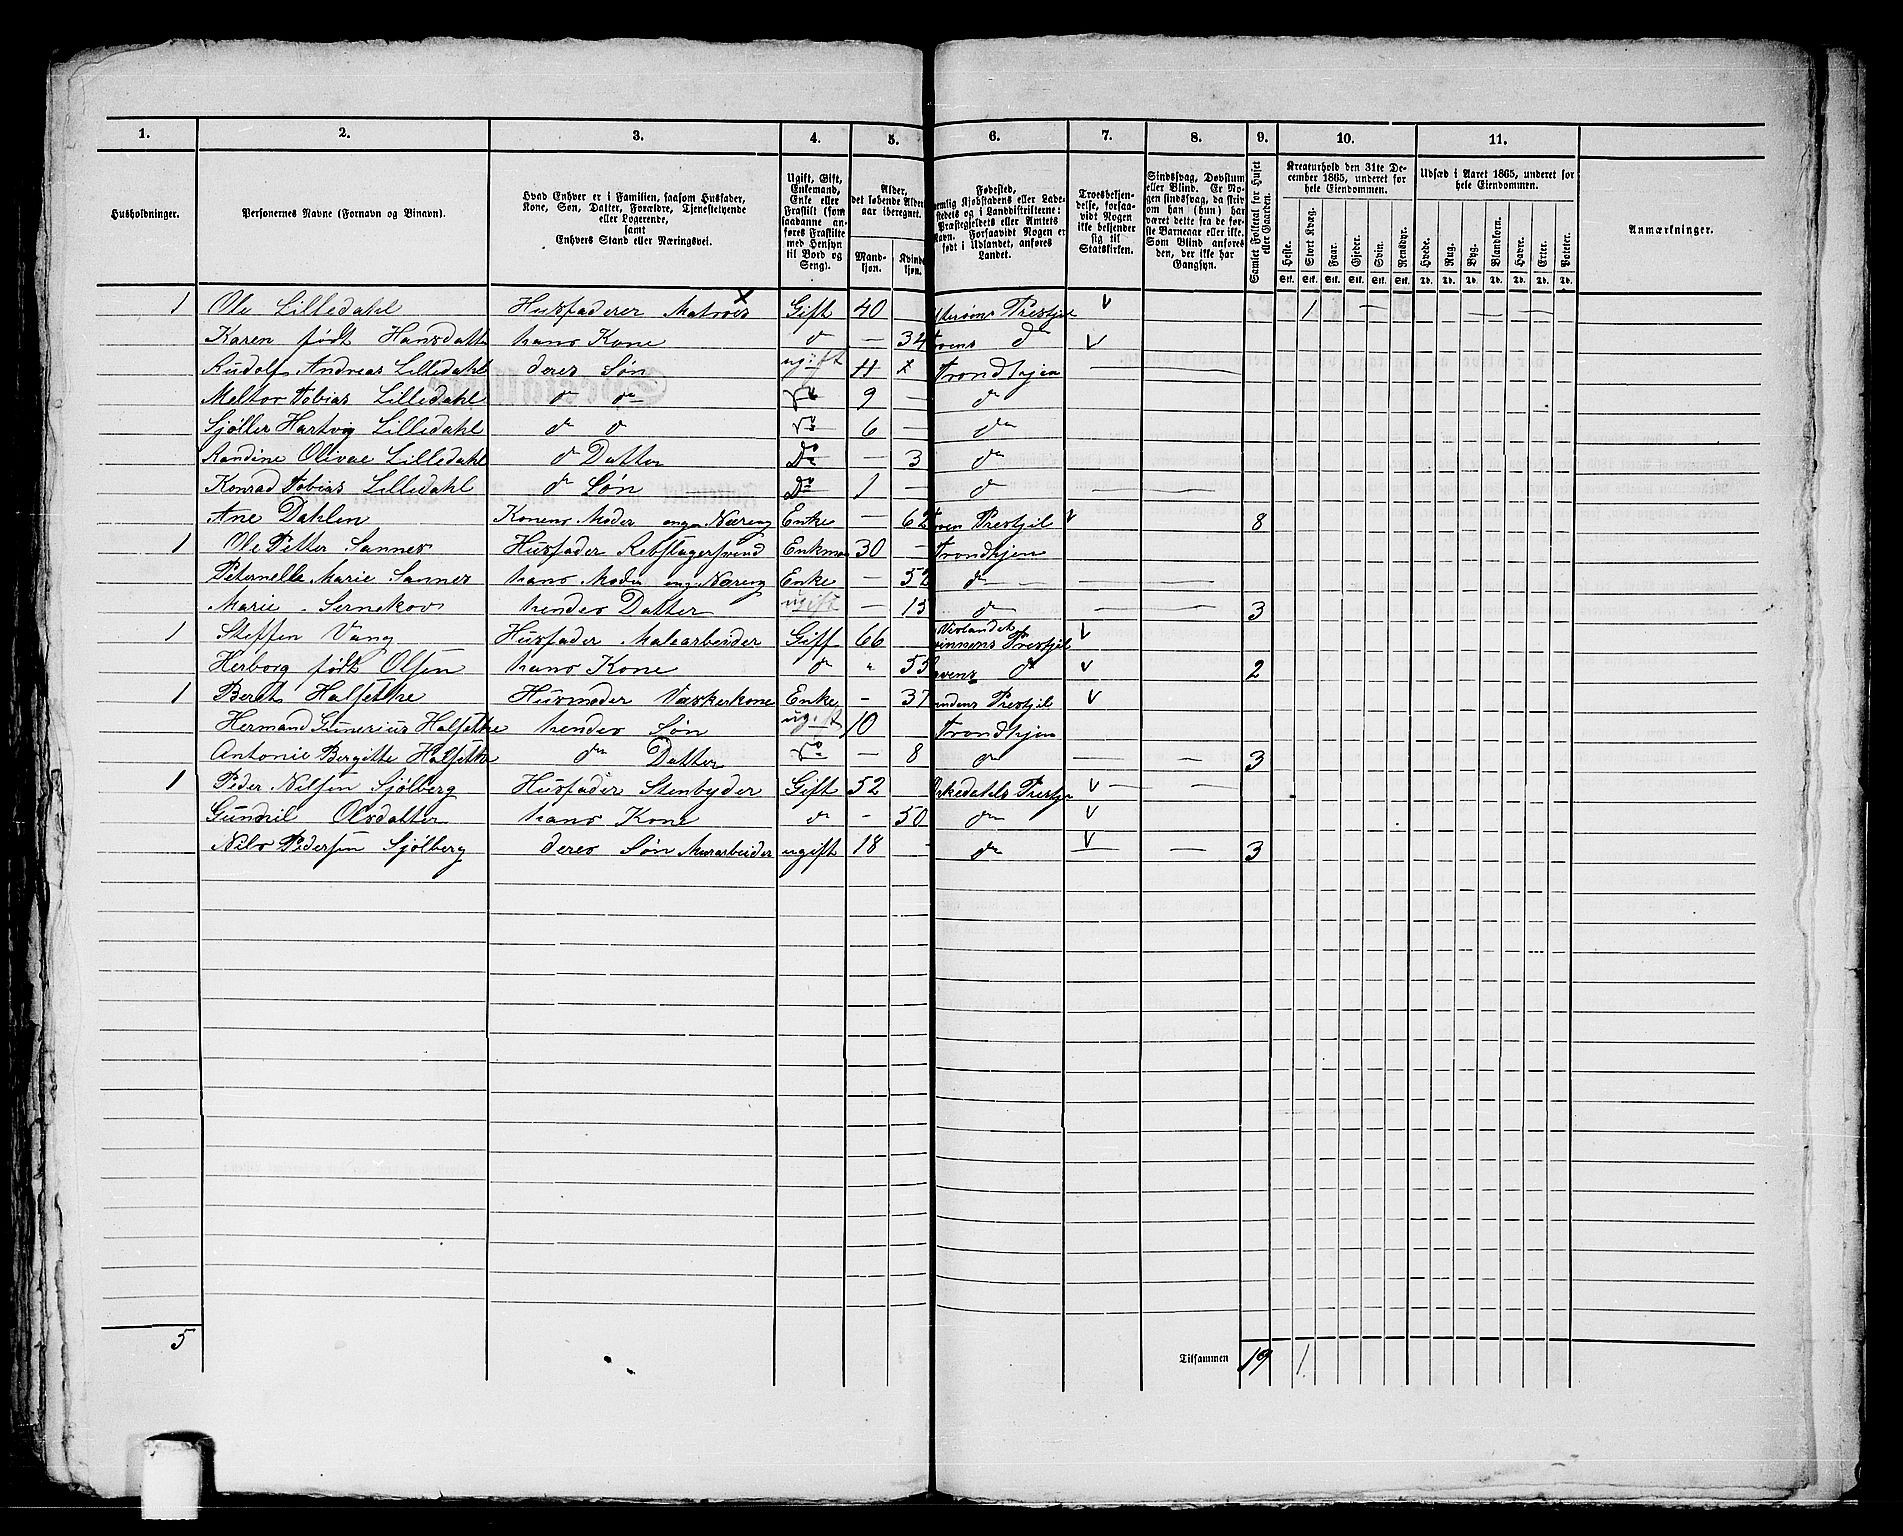 1. 2. 3. 4. 5. 6. 7. 8. 9. 10. 11.
Husholdninger.
Personernes Navne (Fornavn og Binavn).
Hvad Enhver er i Familien, saasom Husfader,
Kone, Søn, Datter, Forældre, Tjenestetyende
eller Logerende,
samt
Enhvers Stand eller Næringsvei.
Ugift, Gift,
Enkemand,
Enke eller
Fraskilt (som
saadanne an-
føres Fraskilte
med Hensyn
til Bord og
Seng).
Alder,
det løbende Alders-
aar iberegnet.
Mand-
kjøn.
Kvinde-
kjøn.
Fødested,
nemlig Kjøbstadens eller Lade-
stedets og i Landdistrikterne:
Præstegjeldets eller Amtets
Navn. Forsaavidt Nogen er
født i Udlandet, anføres
Landet.
Troesbekjen-
delse, forsaa-
vidt Nogen
ikke bekjender
sig til
Statskirken.
Sindssvag, Døvstum
eller Blind. Er No-
gen sindssvag, da skriv
om han (hun) har
været dette fra de før-
ste Barneaar eller ikke.
Som Blind anføres
den, der ikke har
Gangsyn.
Samlet Folketal for Huset
eller Gaarden.
Kreaturhold den 31te De-
cember 1865, underet for
hele Eiendommen.
Heste. Stort Kvæg. Faar. Gjeder. Svin. Rensdyr.
Stk. Stk. Stk. Stk. Stk. Stk.
Udsæd i Aaret 1865, underet for
hele Eiendommen.
Hvede. Rug. Byg. Blandkorn. Havre. Erter. Poteter.
Td. Td. Td. Td. Td. Td. Td.
Anmærkninger.
1 Ole Lilledahl Husfaderer Matroes Gift 40 — Prestjel 1
Karen født Hansdatte hans Kone d — 34 d
Rudolf Andreas Lilledahl deres Søn ugift 11 Trondhjem
Meltor Tobias Lilledahl d do Do 9 — do
Sjøller Hartvig Lilledahl d d Do 6 — do
Randine Olivae Lilledahl d Datter Do — 3 do
Konrad Tobias Lilledahl do Søn Do 1 — d
Ane Dahlen Konens Moder ingen Næring Enke — 62 Prestjil 8
1 Ole Petter Sannes Husfader Rebslagersvend Enkman 30 — Trondhjem
Peternelle Marie Sannes hans Moder ing Næring Enke — 52 do
Marie Sernekov hendes Datter ugift — 15 d 3
1 Steffen Vang Husfader Malearbeider Gift 66 Prestjil
Herborg født Olsen hans Kone d " 55 d 2
1 Beret Halsetke Husmoder Vaskerkone Enke - 37 Prestjil
Hermand Gunerius Halsetke hendes Søn ugift 10 Trondhjem
Antonie Bergitte Halsetke do Datter Do — 8 do 3
1 Peder Nilsen Sjølberg Husfader Stenbyder Gift 52 Orkedals Prestje
Gunhil Olsdatter hans Kone d - 50 do
Nils Pedersen Sjølberg deres Søn Murarbeider ugift 18 - do 3
5
Tilsammen 19 1